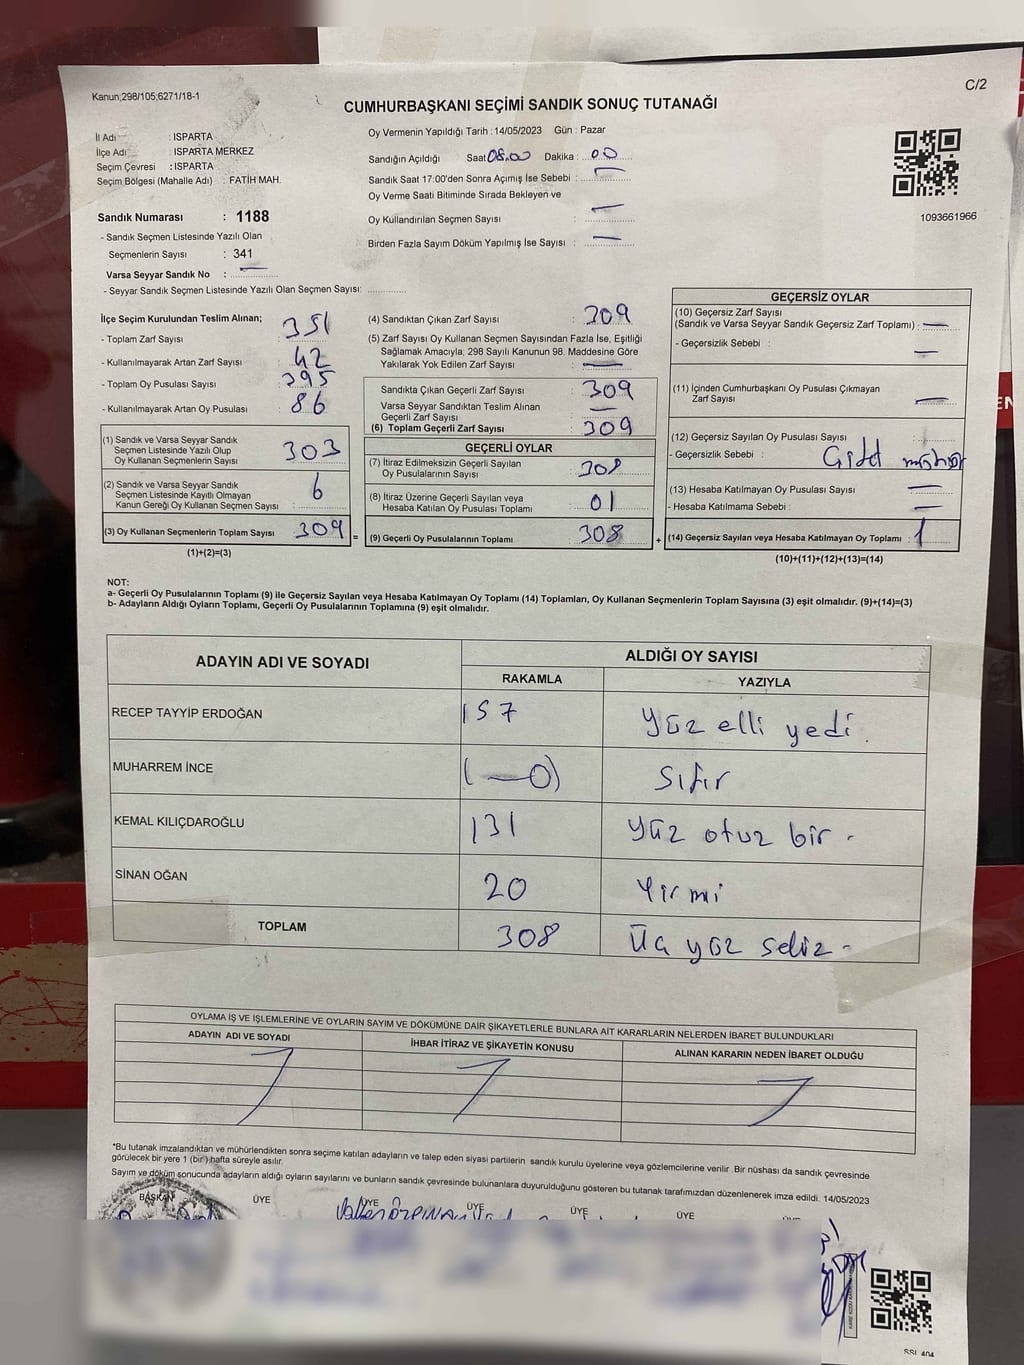 Kanun;298/105;6271/18-1
C/2
CUMHURBAŞKANI SEÇİMİ SANDIK SONUÇ TUTANAĞI
İl Adı : ISPARTA
İlçe Adı : ISPARTA MERKEZ
Seçim Çevresi : ISPARTA
Seçim Bölgesi (Mahalle Adı) : FATİH MAH.
Sandık Numarası : 1188
- Sandık Seçmen Listesinde Yazılı Olan
Seçmenlerin Sayısı : 341
Varsa Seyyar Sandık No : —
- Seyyar Sandık Seçmen Listesinde Yazılı Olan Seçmen Sayısı:
Oy Vermenin Yapıldığı Tarih : 14/05/2023 Gün : Pazar
Sandığın Açıldığı Saat 08.00 Dakika : 00
Sandık Saat 17:00'den Sonra Açımış İse Sebebi : —
Oy Verme Saati Bitiminde Sırada Bekleyen ve
Oy Kullandırılan Seçmen Sayısı : —
Birden Fazla Sayım Döküm Yapılmış İse Sayısı : —
1093661966
İlçe Seçim Kurulundan Teslim Alınan;
- Toplam Zarf Sayısı : 351
- Kullanılmayarak Artan Zarf Sayısı : 42
- Toplam Oy Pusulası Sayısı : 395
- Kullanılmayarak Artan Oy Pusulası : 86
(1) Sandık ve Varsa Seyyar Sandık
Seçmen Listesinde Yazılı Olup
Oy Kullanan Seçmenlerin Sayısı : 303
(2) Sandık ve Varsa Seyyar Sandık
Seçmen Listesinde Kayıtlı Olmayan
Kanun Gereği Oy Kullanan Seçmen Sayısı : 6
(3) Oy Kullanan Seçmenlerin Toplam Sayısı : 309
(1)+(2)=(3)
(4) Sandıktan Çıkan Zarf Sayısı : 309
(5) Zarf Sayısı Oy Kullanan Seçmen Sayısından Fazla İse, Eşitliği
Sağlamak Amacıyla, 298 Sayılı Kanunun 98. Maddesine Göre
Yakılarak Yok Edilen Zarf Sayısı : —
Sandıkta Çıkan Geçerli Zarf Sayısı : 309
Varsa Seyyar Sandıktan Teslim Alınan
Geçerli Zarf Sayısı : —
(6) Toplam Geçerli Zarf Sayısı : 309
GEÇERLİ OYLAR
(7) İtiraz Edilmeksizin Geçerli Sayılan
Oy Pusulalarının Sayısı : 308
(8) İtiraz Üzerine Geçerli Sayılan veya
Hesaba Katılan Oy Pusulası Toplamı : 01
(9) Geçerli Oy Pusulalarının Toplamı : 308
=
+
GEÇERSİZ OYLAR
(10) Geçersiz Zarf Sayısı
(Sandık ve Varsa Seyyar Sandık Geçersiz Zarf Toplamı) : —
- Geçersizlik Sebebi : —
(11) İçinden Cumhurbaşkanı Oy Pusulası Çıkmayan
Zarf Sayısı : —
(12) Geçersiz Sayılan Oy Pusulası Sayısı :
- Geçersizlik Sebebi :
(13) Hesaba Katılmayan Oy Pusulası Sayısı : —
- Hesaba Katılmama Sebebi : —
(14) Geçersiz Sayılan veya Hesaba Katılmayan Oy Toplamı : 1
(10)+(11)+(12)+(13)=(14)
NOT:
a- Geçerli Oy Pusulalarının Toplamı (9) ile Geçersiz Sayılan veya Hesaba Katılmayan Oy Toplamı (14) Toplamları, Oy Kullanan Seçmenlerin Toplam Sayısına (3) eşit olmalıdır. (9)+(14)=(3)
b- Adayların Aldığı Oyların Toplamı, Geçerli Oy Pusulalarının Toplamına (9) eşit olmalıdır.
ADAYIN ADI VE SOYADI
ALDIĞI OY SAYISI
RAKAMLA YAZIYLA
RECEP TAYYİP ERDOĞAN 157 Yüz elli yedi.
MUHARREM İNCE (—0) Sıfır
KEMAL KILIÇDAROĞLU 131 yüz otuz bir -
SİNAN OĞAN 20 Yirmi
TOPLAM 308 Üç yüz sekiz -
OYLAMA İŞ VE İŞLEMLERİNE VE OYLARIN SAYIM VE DÖKÜMÜNE DAİR ŞİKAYETLERLE BUNLARA AİT KARARLARIN NELERDEN İBARET BULUNDUKLARI
ADAYIN ADI VE SOYADI İHBAR İTİRAZ VE ŞİKAYETİN KONUSU ALINAN KARARIN NEDEN İBARET OLDUĞU
*Bu tutanak imzalandıktan ve mühürlendikten sonra seçime katılan adayların ve talep eden siyasi partilerin sandık kurulu üyelerine veya gözlemcilerine verilir. Bir nüshası da sandık çevresinde
görülecek bir yere 1 (bir) hafta süreyle asılır.
Sayım ve döküm sonucunda adayların aldığı oyların sayılarını ve bunların sandık çevresinde bulunanlara duyurulduğunu gösteren bu tutanak tarafımızdan düzenlenerek imza edildi. 14/05/2023
BAŞKAN ÜYE ÜYE ÜYE ÜYE ÜYE ÜYE